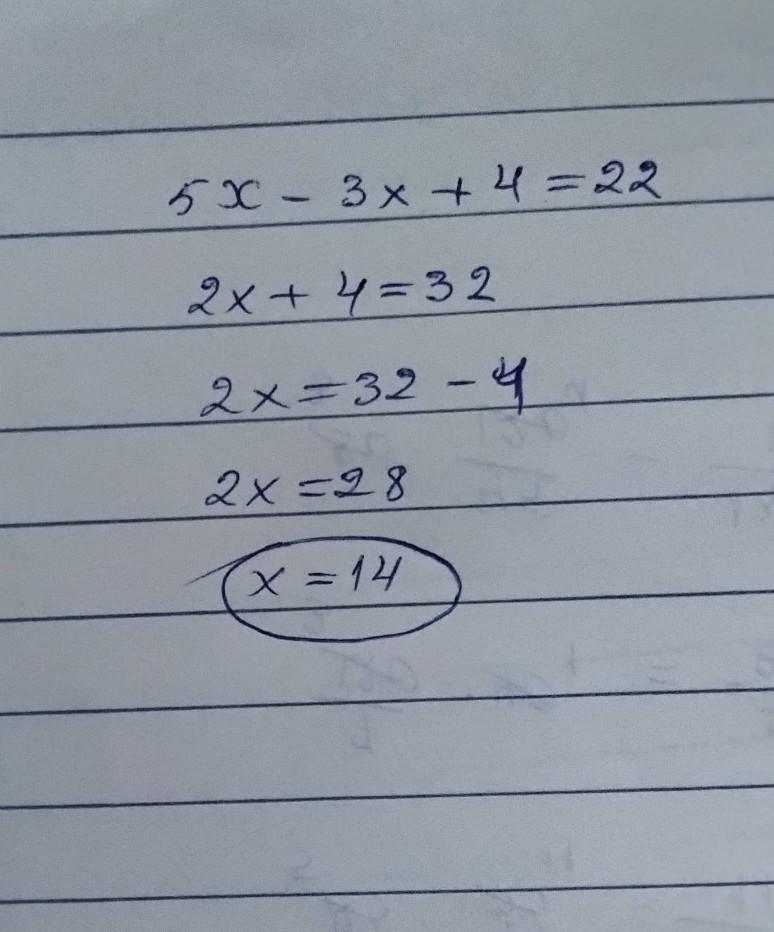 5x - 3x + 4 = 22
2x + 4 = 32
2x = 32 - 4
2x = 28
x = 14